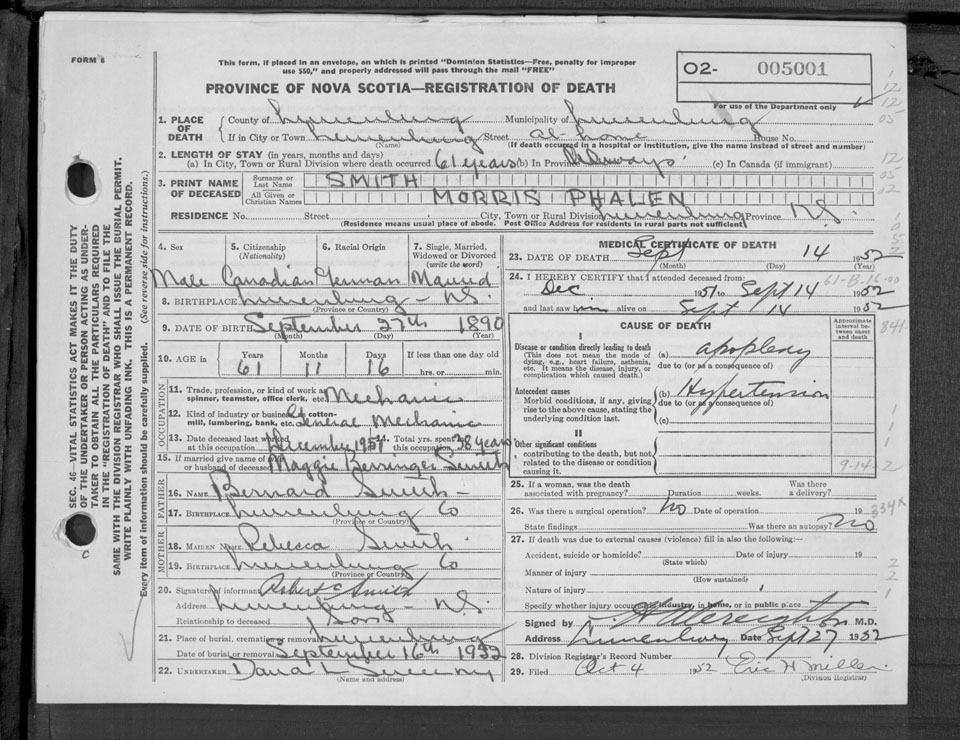 FORM 6
This form, if placed in an envelope, on which is printed "Dominion Statistics—Free, penalty for improper
use $50," and properly addressed will pass through the mail "FREE"
PROVINCE OF NOVA SCOTIA—REGISTRATION OF DEATH
O2- 005001
For use of the Department only
SEC. 46—VITAL STATISTICS ACT MAKES IT THE DUTY
OF THE UNDERTAKER OR PERSON ACTING AS UNDER-
TAKER TO OBTAIN ALL THE PARTICULARS REQUIRED
IN THE "REGISTRATION OF DEATH" AND TO FILE THE
SAME WITH THE DIVISION REGISTRAR WHO SHALL ISSUE THE BURIAL PERMIT.
WRITE PLAINLY WITH UNFADING INK. THIS IS A PERMANENT RECORD.
Every item of information should be carefully supplied. (See reverse side for instructions.)
1. PLACE OF DEATH
County of Lunenburg Municipality of Lunenburg
If in City or Town Lunenburg Street at home House No.
(Name) (If death occurred in a hospital or institution, give the name instead of street and number)
2. LENGTH OF STAY (in years, months and days)
(a) In City, Town or Rural Division where death occurred 61 years (b) In Province Always (c) In Canada (if immigrant)
3. PRINT NAME OF DECEASED
Surname or Last Name SMITH
All Given or Christian Names MORRIS PHALEN
RESIDENCE No. Street City, Town or Rural Division Lunenburg Province N.S.
(Residence means usual place of abode. Post Office Address for residents in rural parts not sufficient)
4. Sex Male
5. Citizenship (Nationality) Canadian
6. Racial Origin German
7. Single, Married, Widowed or Divorced (write the word) Married
8. BIRTHPLACE Lunenburg - N.S.
(Province or Country)
9. DATE OF BIRTH September 27th 1890
(Month) (Day) (Year)
10. AGE in Years 61 Months 11 Days 16 If less than one day old hrs. or min.
OCCUPATION
11. Trade, profession, or kind of work as spinner, teamster, office clerk, etc. Mechanic
12. Kind of industry or business, as cotton-mill, lumbering, bank, etc. General Mechanic
13. Date deceased last worked at this occupation December 1951
14. Total yrs. spent in this occupation 38 years
15. If married give name of wife or husband of deceased Maggie Berringer Smith
FATHER
16. NAME Bernard Smith
17. BIRTHPLACE Lunenburg Co
(Province or Country)
MOTHER
18. MAIDEN NAME Rebecca Smith
19. BIRTHPLACE Lunenburg Co
(Province or Country)
20. Signature of informant Robert C Smith
Address Lunenburg - N.S.
Relationship to deceased Son
21. Place of burial, cremation or removal Lunenburg
Date of burial or removal September 16th 1952
22. UNDERTAKER Dana L Sweeny
(Name and address)
MEDICAL CERTIFICATE OF DEATH
23. DATE OF DEATH Sept 14 1952
(Month) (Day) (Year)
24. I HEREBY CERTIFY that I attended deceased from:
Dec 1951 to Sept 14 1952
and last saw him alive on Sept 14 1952
61-B-16-00
CAUSE OF DEATH
Approximate interval between onset and death
841
I
Disease or condition directly leading to death
(This does not mean the mode of dying, e.g., heart failure, asthenia, etc. It means the disease, injury, or complication which caused death.)
(a) apoplexy
due to (or as a consequence of)
Antecedent causes
Morbid conditions, if any, giving rise to the above cause, stating the underlying condition last.
(b) Hypertension
due to (or as a consequence of)
(c)
II
Other significant conditions
contributing to the death, but not related to the disease or condition causing it.
9-14-2
25. If a woman, was the death associated with pregnancy? Duration weeks. Was there a delivery?
26. Was there a surgical operation? No Date of operation 19
334X
State findings Was there an autopsy? No
27. If death was due to external causes (violence) fill in also the following:—
Accident, suicide or homicide? Date of injury 19
(State which)
Manner of injury
(How sustained)
Nature of injury
Specify whether injury occurred in industry, in home, or in public place
Signed by M.D.
Address Lunenburg Date Sept 27 1952
28. Division Registrar's Record Number
29. Filed Oct 4 1952 Eric H Miller
(Division Registrar)